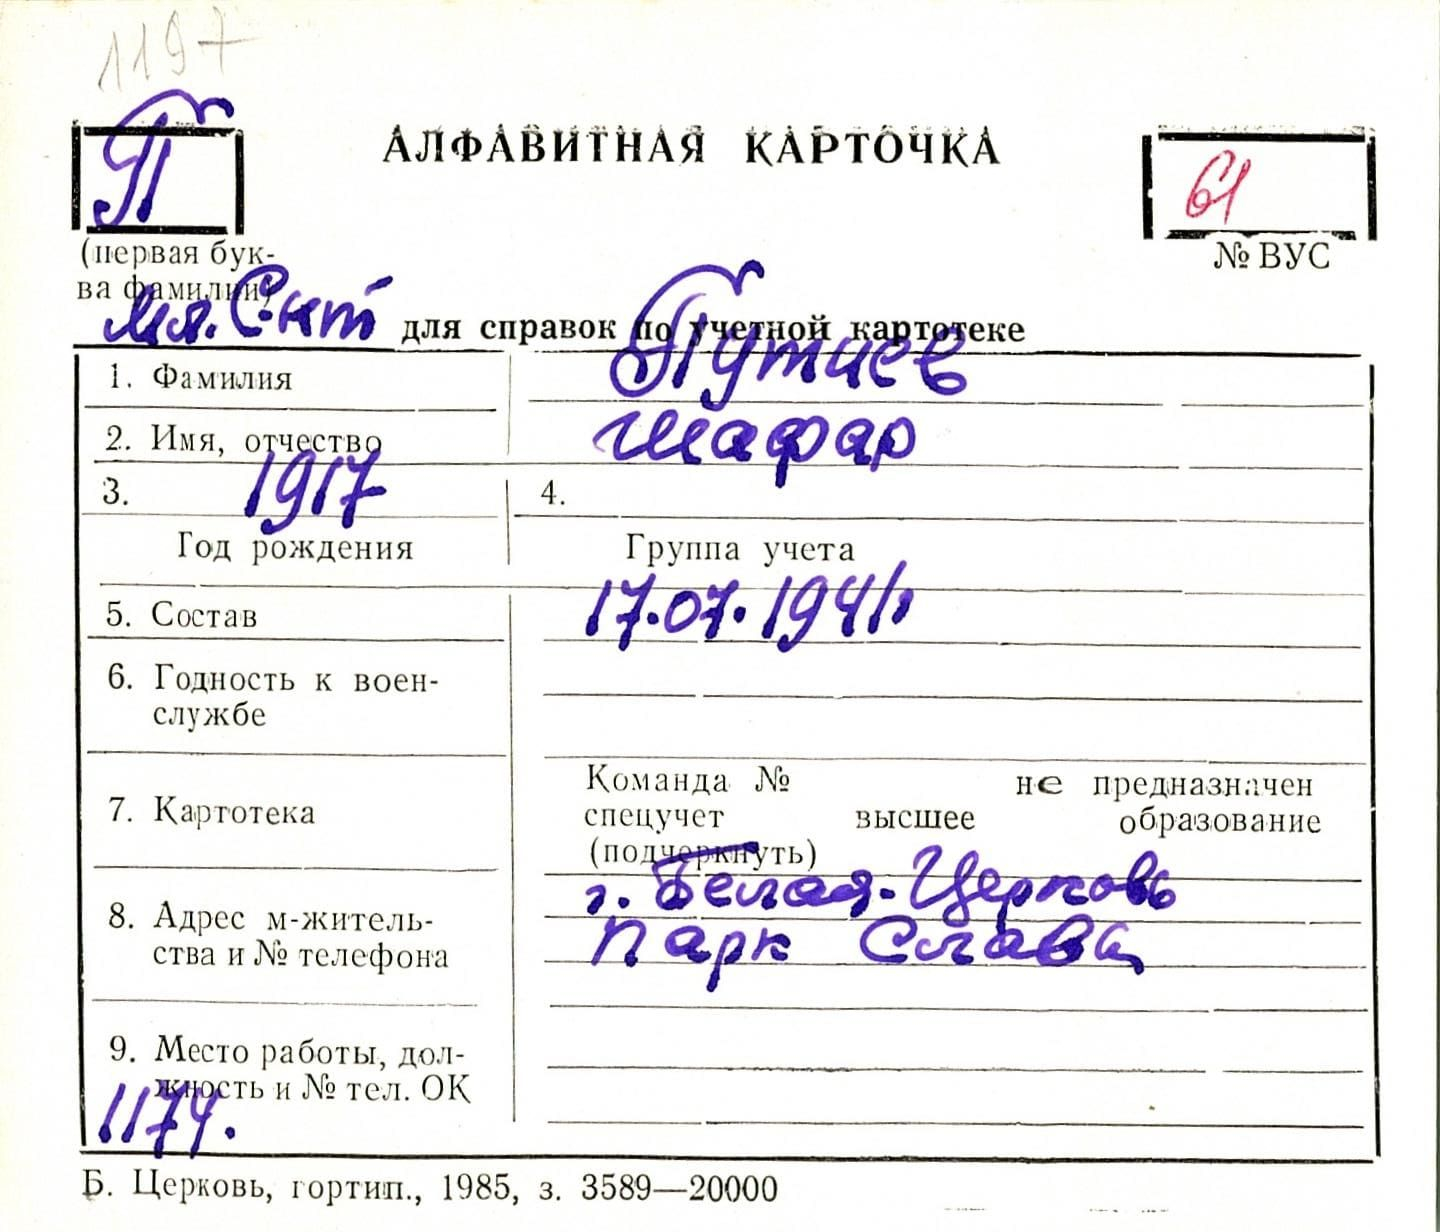 1197
П
АЛФАВИТНАЯ КАРТОЧКА
61
(первая бук-
ва фамилии)
№ ВУС
мл. С-нт
для справок по учетной картотеке
1. Фамилия Путиев
2. Имя, отчество Шафар
3. 1917 4.
Год рождения Группа учета
5. Состав 17.07.1941г.
6. Годность к воен-
службе
7. Картотека
Команда № не предназначен
спецучет высшее образование
(подчеркнуть)
8. Адрес м-житель-
ства и № телефона
г. Белая-Церковь
Парк Слава
9. Место работы, дол-
жность и № тел. ОК
1174.
Б. Церковь, гортип., 1985, з. 3589—20000